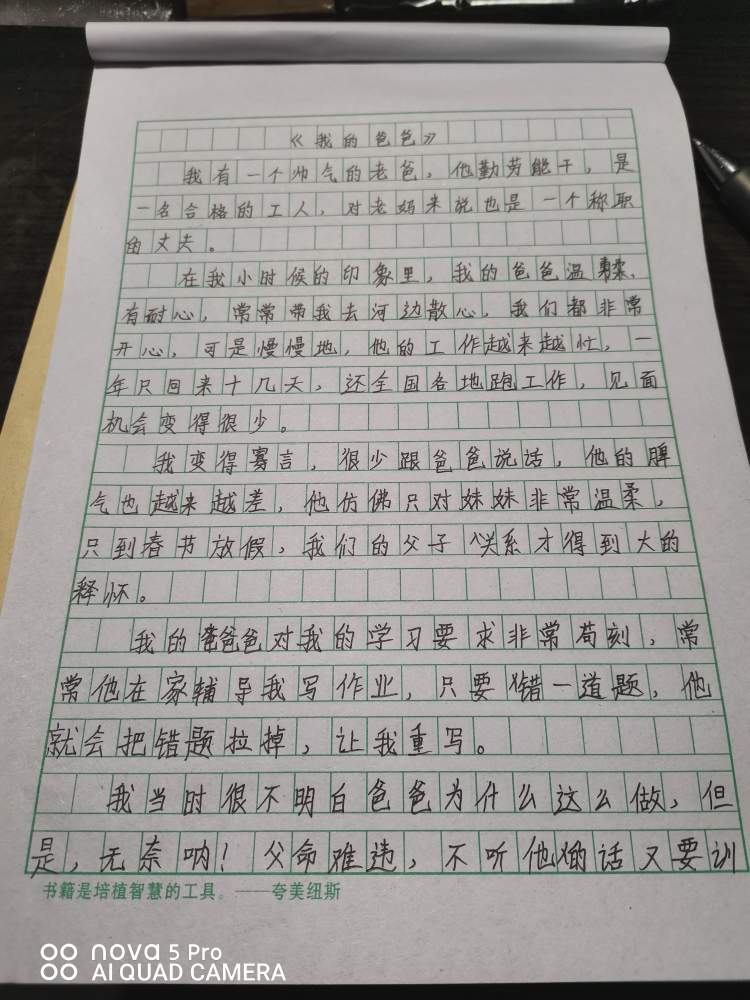 《我的爸爸》
我有一个帅气的老爸，他勤劳能干，是
一名合格的工人，对老妈来说也是一个称职
的丈夫。
在我小时候的印象里，我的爸爸温柔、
有耐心，常常带我去河边散心，我们都非常
开心，可是慢慢地，他的工作越来越忙，一
年只回来十几天，还全国各地跑工作，见面
机会变得很少。
我变得寡言，很少跟爸爸说话，他的脾
气也越来越差，他仿佛只对妹妹非常温柔，
只到春节放假，我们的父子关系才得到大的
释怀。
我的爸爸对我的学习要求非常苟刻，常
常他在家辅导我写作业，只要错一道题，他
就会把错题拉掉，让我重写。
我当时很不明白爸爸为什么这么做，但
是，无奈呐！父命难违，不听他的话又要训
书籍是培植智慧的工具。——夸美纽斯
nova 5 Pro
AI QUAD CAMERA